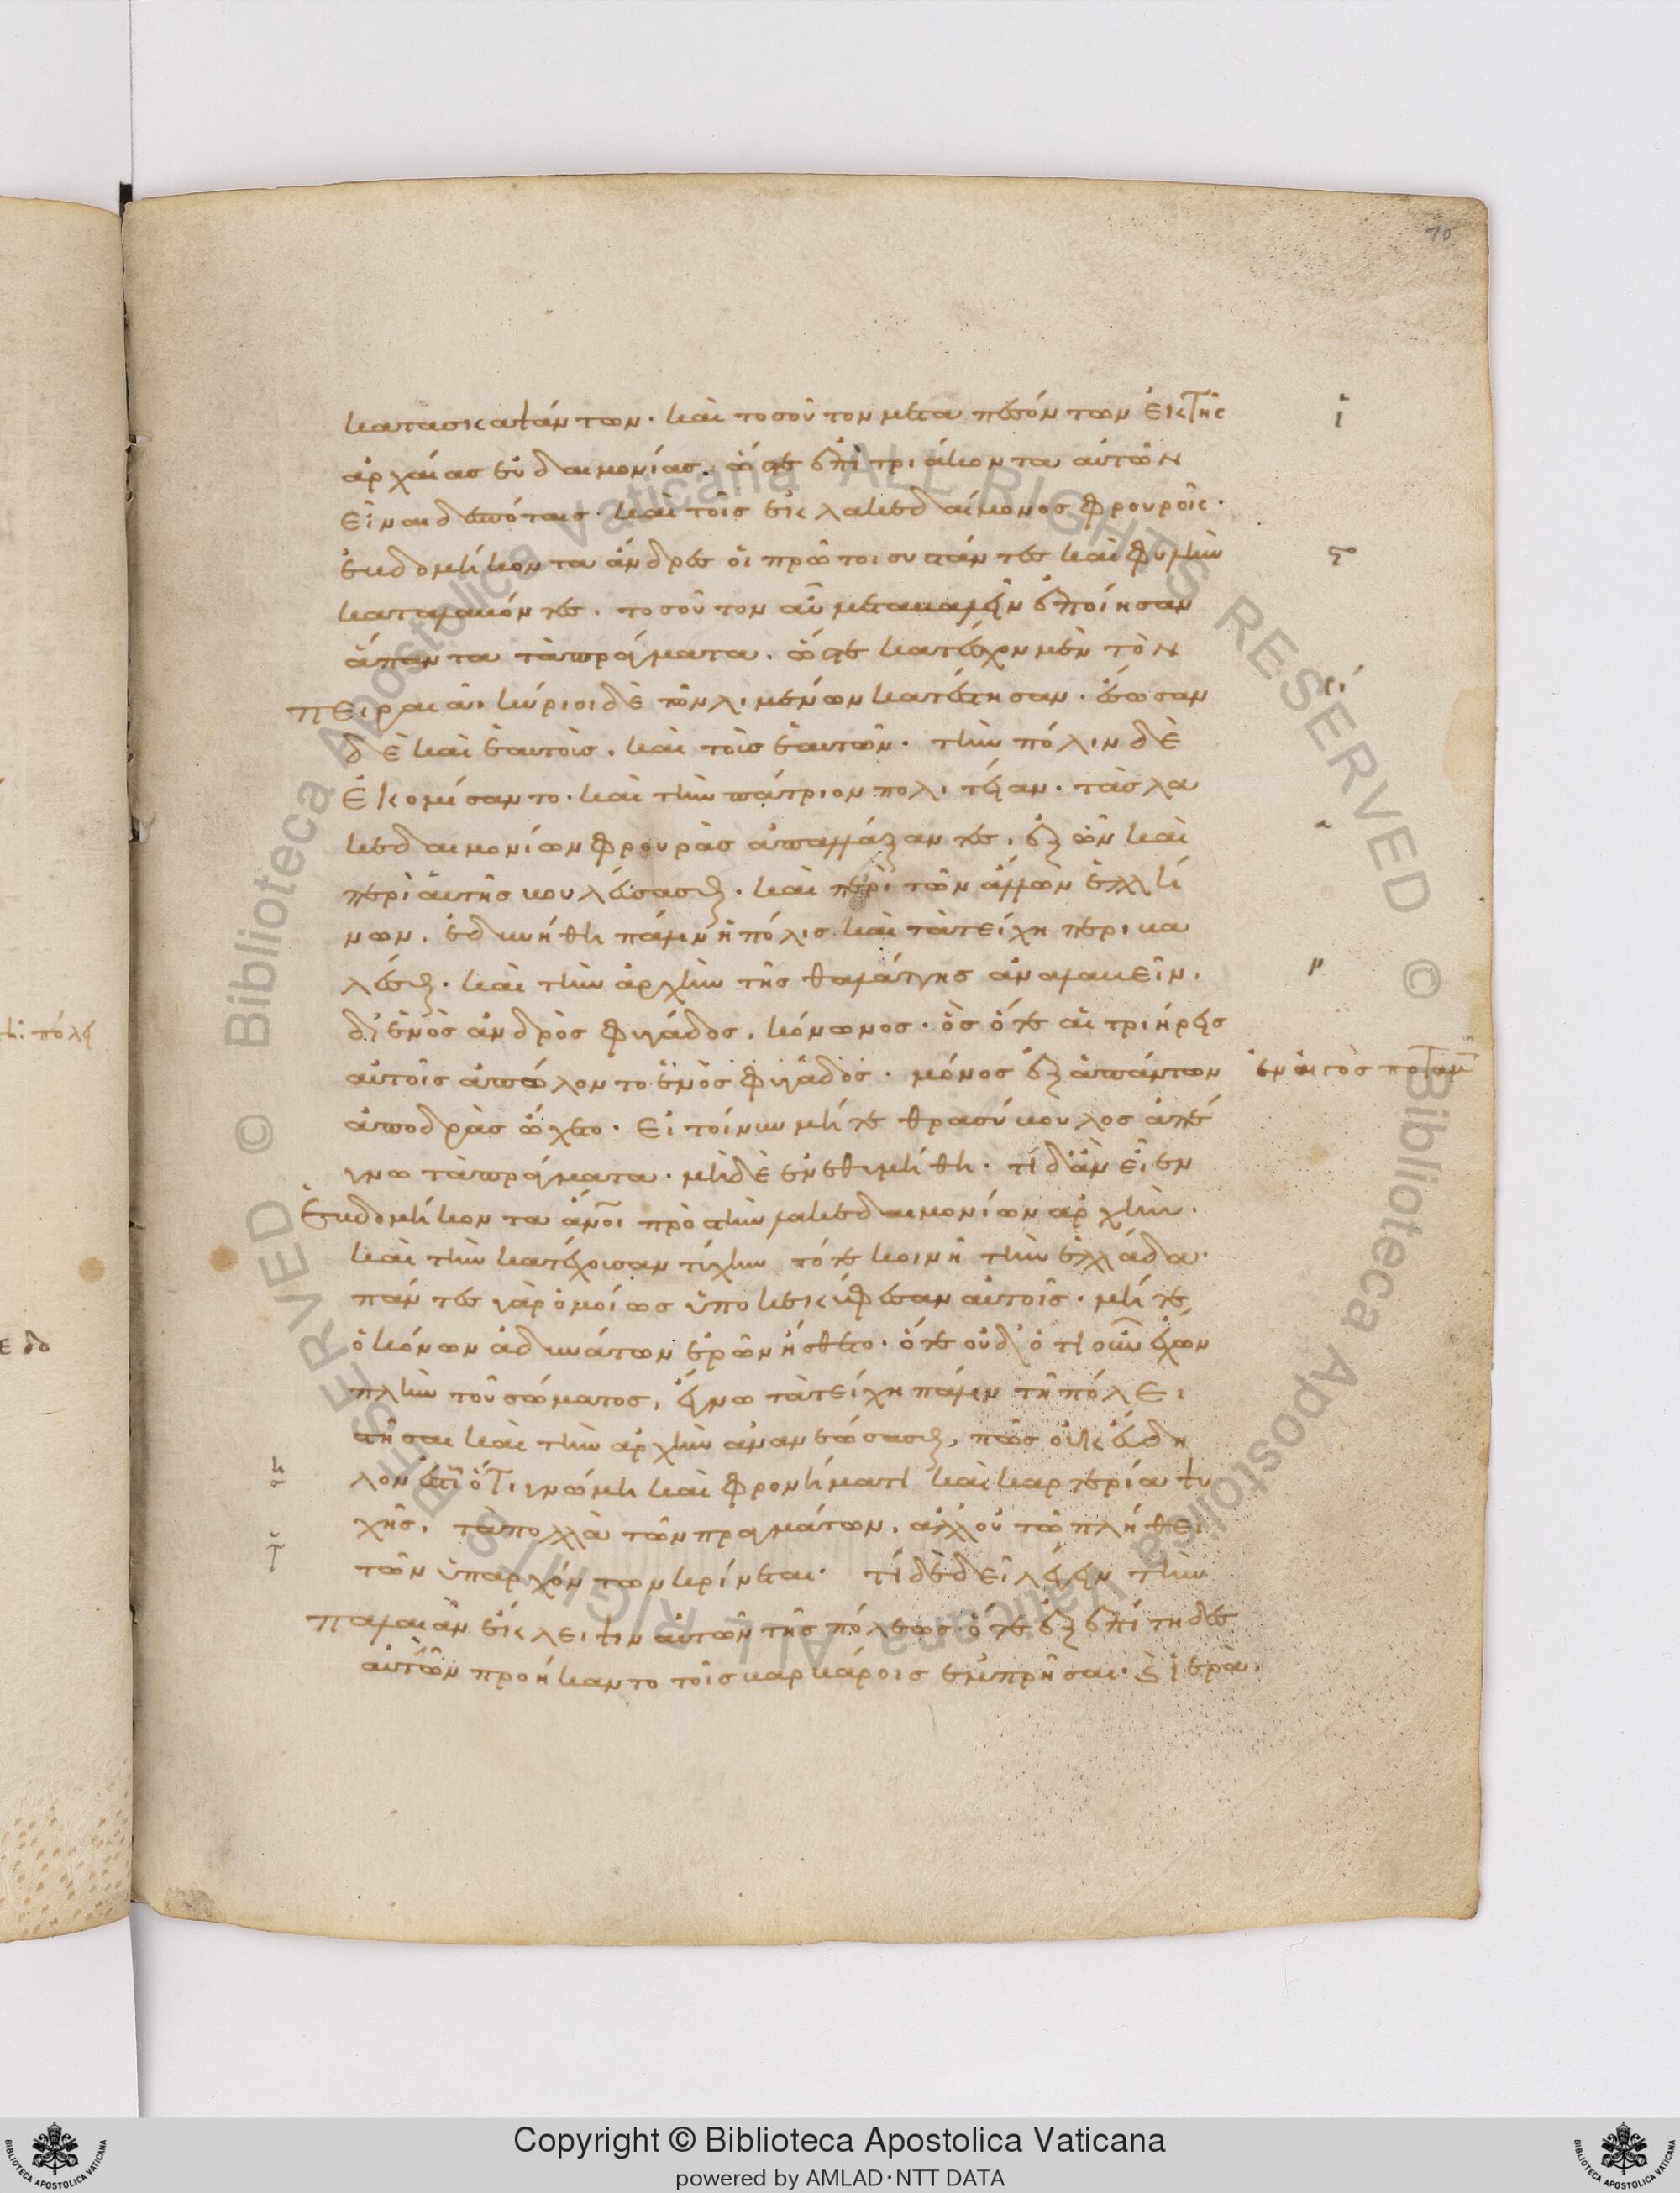 70
κατασκαψάντων· καὶ τοσοῦτον μεταπεσόντων ἐκ τῆς
ἀρχαίας εὐδαιμονίας. ὥστε ἐπὶ τριάκοντα αὐτῶν
εἶναι δεσπόταις· καὶ τοῖς ἐκ λακεδαίμονος φρουροῖς·
ἑβδομήκοντα ἄνδρες οἱ πρῶτοι συστάντες καὶ φυλὴν
καταλαβόντες. τοσοῦτον αὖ μεταβαλεῖν ἐποίησαν
ἅπαντα τὰ πράγματα. ὥστε κατέσχον μὲν τὸν
πειραιᾶ. κύριοι δὲ τῶν λιμένων κατέστησαν. ἔσωσαν
δὲ καὶ ἑαυτοὶς. καὶ τοὶς ἑαυτῶν· τὴν πόλιν δὲ
ἐκομίσαντο· καὶ τὴν πάτριον πολιτείαν· τὰς λα
κεδαιμονίων φρουρὰς ἀπαλλάξαντες. ἐξ ὧν καὶ
περὶ αὑτῆς βουλεύσασθαι· καὶ περὶ τῶν ἄλλων ἑλλή
νων. ἐδυνήθη πάλιν ἡ πόλις καὶ τὰ τείχη περιβα
λέσθαι· καὶ τὴν ἀρχὴν τῆς θαλάττης ἀναλαβεῖν.
δι' ἑνὸς ἀνδρὸς φυγάδος. κόνωνος· ὃς ὅτε αἱ τριήρεις
αὐτοῖς ἀπώλοντο ἑνὸς φυγάδος· μόνος ἐξ ἁπάντων
ἐν αἰγὸς ποταμ
ἀποδρὰς ᾤχετο· εἰ τοίνυν μήτε θρασύβουλος ἀπέ
γνω τὰ πράγματα· μηδὲ ἐνεθυμήθη· τί δ' ἂν εἶεν
ἑβδομήκοντα ἄνοι πρὸς τὴν λακεδαιμονίων ἀρχὴν.
καὶ τὴν κατέχουσαν τύχην τότε κοινῇ τὴν ἑλλάδα·
πάντες γὰρ ὁμοίως ὑποκεκύφεσαν αὐτοῖς· μήτε
ὁ κόνων ἀδυνάτων ἐρῶν ἤσθετο· ὅτε οὐδ' ὁτιοῦν ἔχων
πλὴν τοῦ σώματος, ἔγνω τὰ τείχη πάλιν τῇ πόλει
στῆσαι καὶ τὴν ἀρχὴν ἀνανεώσασθαι, πῶς οὐκ εὔδη
λον ἐστὶ ὅτι γνώμη καὶ φρονήματι καὶ καρτερία ψυ
χῆς. τὰ πολλὰ τῶν πραγμάτων. ἀλλ' οὐ τῶ πλήθει
τῶν ὑπαρχόντων κρίνεται· τί δὲ δεῖ λέγειν τὴν
παλαιὰν ἔκλειψιν αὐτῶν τῆς πόλεως· ὅτε ἐξεπίτηδες
αὐτῶν προήκαντο τοῖς βαρβάροις ἐμπρῆσαι· καὶ ἱερὰ.